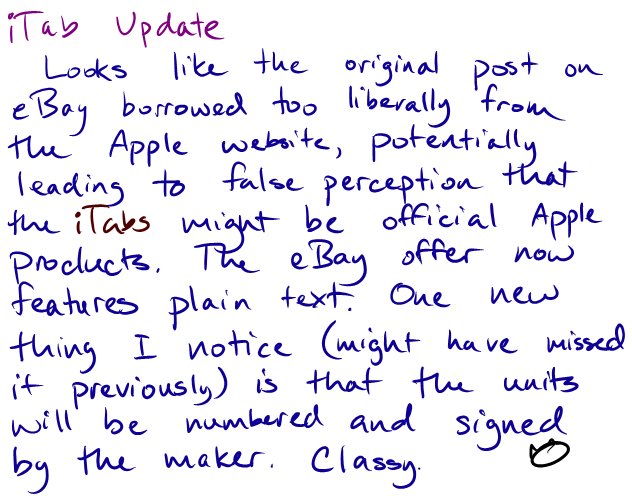 iTab Update
Looks like the original post on
eBay borrowed too liberally from
the Apple website, potentially
leading to false perception that
the iTabs might be official Apple
products. The eBay offer now
features plain text. One new
thing I notice (might have missed
it previously) is that the units
will be numbered and signed
by the maker. Classy.